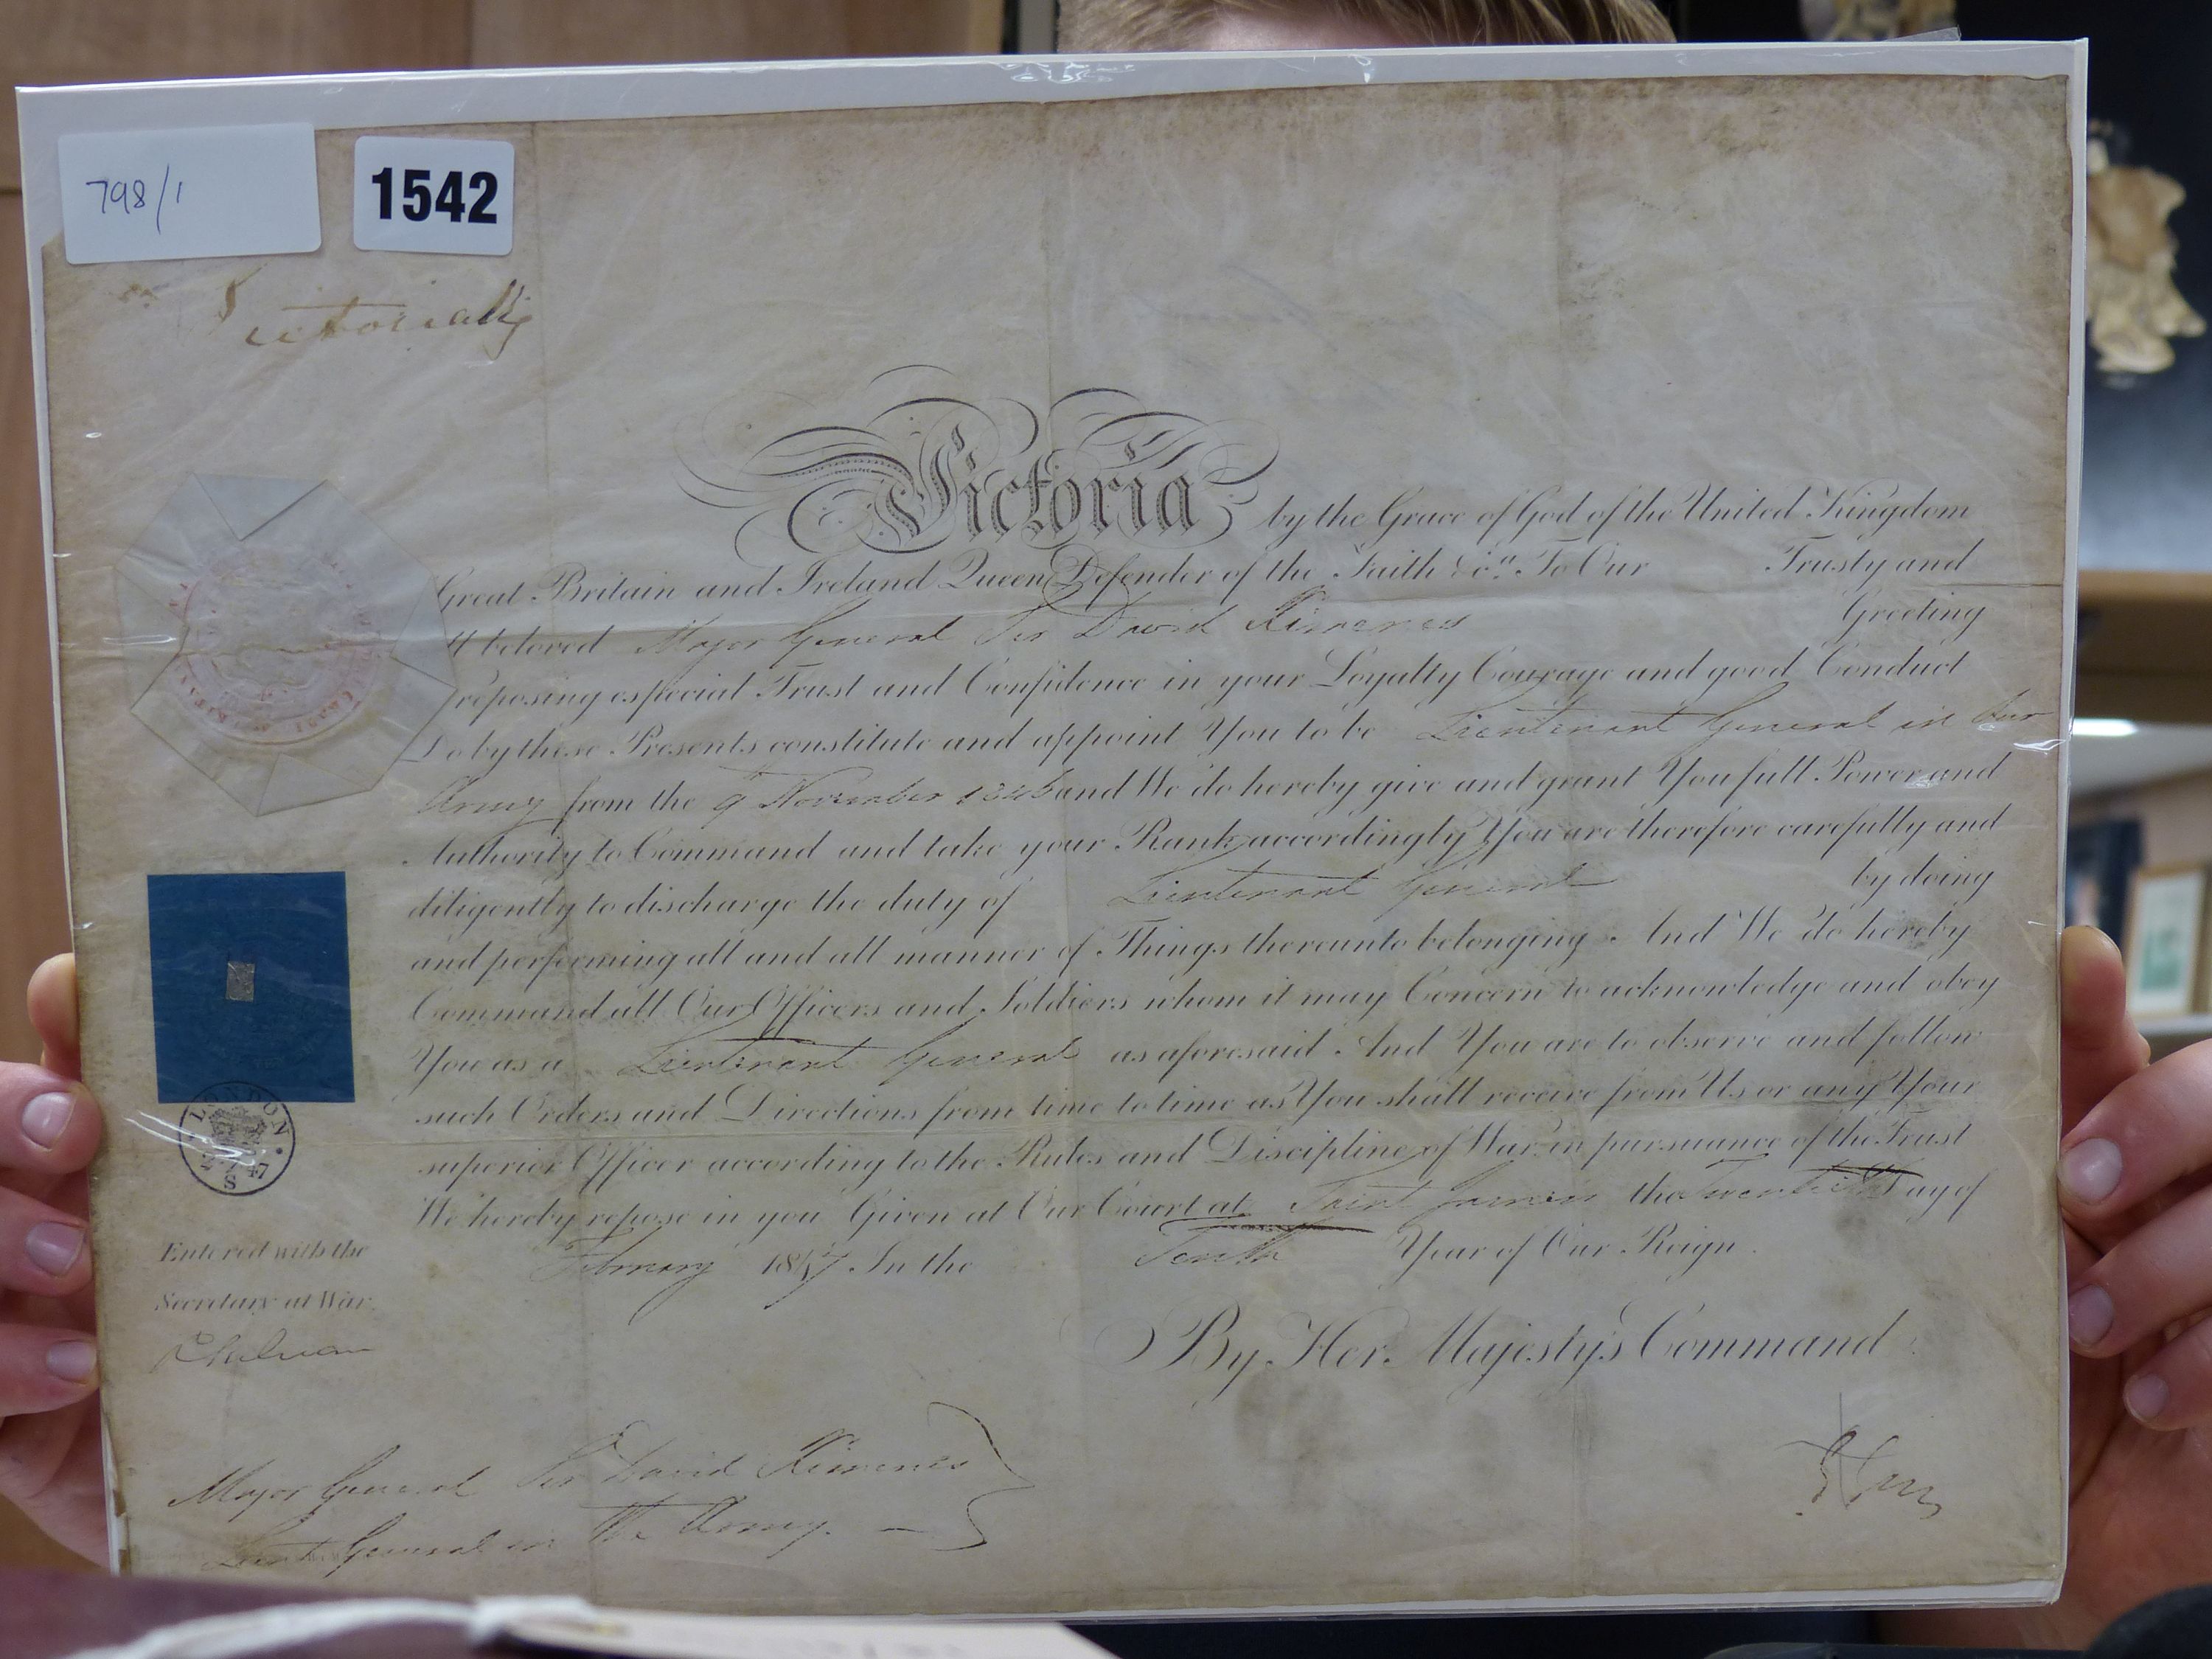 798/1
1542
Victoria Rg
Victoria by the Grace of God of the United Kingdom
Great Britain and Ireland Queen Defender of the Faith &c.a To Our Trusty and
Well beloved Major General Sir David Ximenes Greeting
reposing especial Trust and Confidence in your Loyalty Courage and good Conduct
Do by these Presents constitute and appoint You to be Lieutenant General in Our
Army from the 9 November 1846 and We do hereby give and grant You full Power and
Authority to Command and take your Rank accordingly You are therefore carefully and
diligently to discharge the duty of Lieutenant General by doing
and performing all and all manner of Things thereunto belonging. And We do hereby
Command all Our Officers and Soldiers whom it may Concern to acknowledge and obey
You as a Lieutenant General as aforesaid. And You are to observe and follow
such Orders and Directions from time to time as You shall receive from Us or any Your
superior Officer according to the Rules and Discipline of War in pursuance of the Trust
We hereby repose in you Given at Our Court at Saint James's the Twentieth Day of
February 1847 In the Tenth Year of Our Reign.
By Her Majesty's Command
LONDON
Entered with the
Secretary at War.
Major General Sir David Ximenes
Lieut General in The Army.